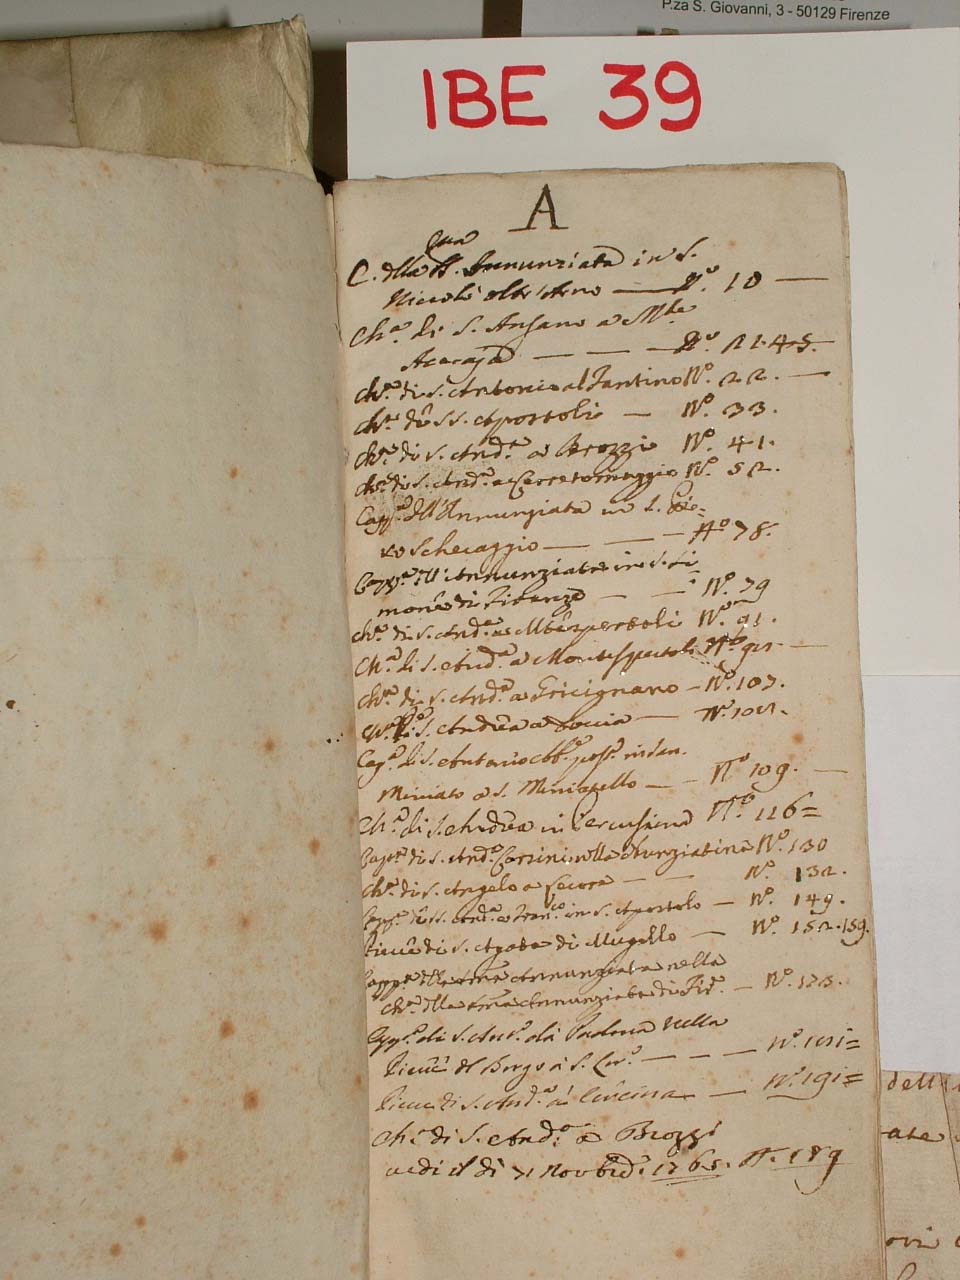 P.za S. Giovanni, 3 - 50129 Firenze
IBE 39
A
C. della SS. Annunziata in S.
Niccolò oltr'Arno — N.° 10 —
Ch.ª di S. Ansano a M.te
Acecajã — — — N.° 21.45.
Ch.ª di S. Antonio al Fantino N.° 22. —
Ch.ª di SS. Apostoli — N.° 33.
Ch.ª di S. And.ª a Brozzi N.° 41.
Ch.ª di S. And.ª a Cerretomaggio N.° 52.
Capp.ª dll'Annunziata in S. Pie-
ro Scheraggio — — — N.° 78.
Capp.ª dll' Annunziata in S. Si
mone di Firenze — — N.° 79
Ch.ª di S. And.ª a Mõtespertoli N.° 91.
Ch.ª di S. And.ª a Montespertoli N.°
Ch.ª di S. And.ª a Gricignano — N.° 107.
di S. Andrea a Doccia — N.°
Cap.ª di S. Antonio Abb.e post.ª in San
Miniato a S. Miniatello — N.° 109. —
Ch.ª di S. Andrea in Percussina N.° 116=
Capp.ª di S. And.ª Corsini nella Nunziatina N.° 130
Ch.ª di S. Angelo a Lecore — — N.° 132.
Capp.ª di SS. And.ª e Fran.co in S. Apostolo — N.° 149.
Pieve di S. Agata di Mugello — N.° 152.159.
Capp.ª dlla SSma Annunziata nella
Ch.ª dlla SSma Annunziata di Fir.e — N.° 173.
Capp.ª di S. Ant.º da Padova nella
Pieve di Borgo a S. Lor.º — — — N.°
Pieve di S. And.ª a Cercina — N.° 191=
Ch.ª di S. And.ª a Brozzi
vedi il dì 7 Novbre 1765. N. 189
dell
ate
ovi